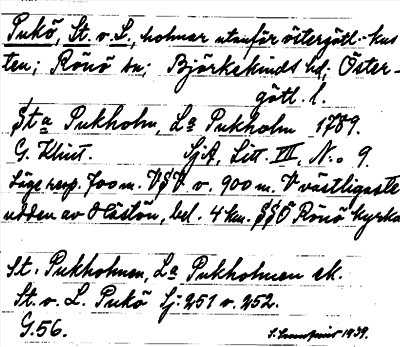 Pukö, St. o. L., holmar utanför östergötl. kus
ten; Rönö sn; Björkekinds hd, Öster-
götl. l.
Sta Pukholm, La Pukholm 1789.
G. Klint. SjA, Litt. III, N:o 9.
Läge resp. 700 m. VSV o. 900 m. V västligaste
udden av Hästön, bel. 4 km. SSÖ Rönö kyrka
St. Pukholmen, La Pukholmen ek.
St. o. L. Pukö Sj. 251 o. 252.
G.56. 1939.